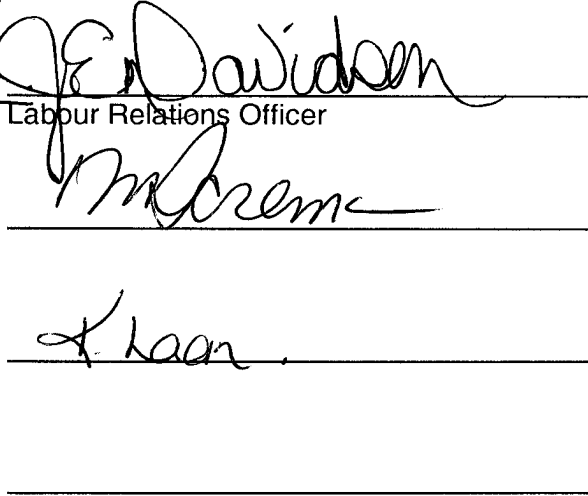 JEDavidson
Labour Relations Officer
K. Laan.